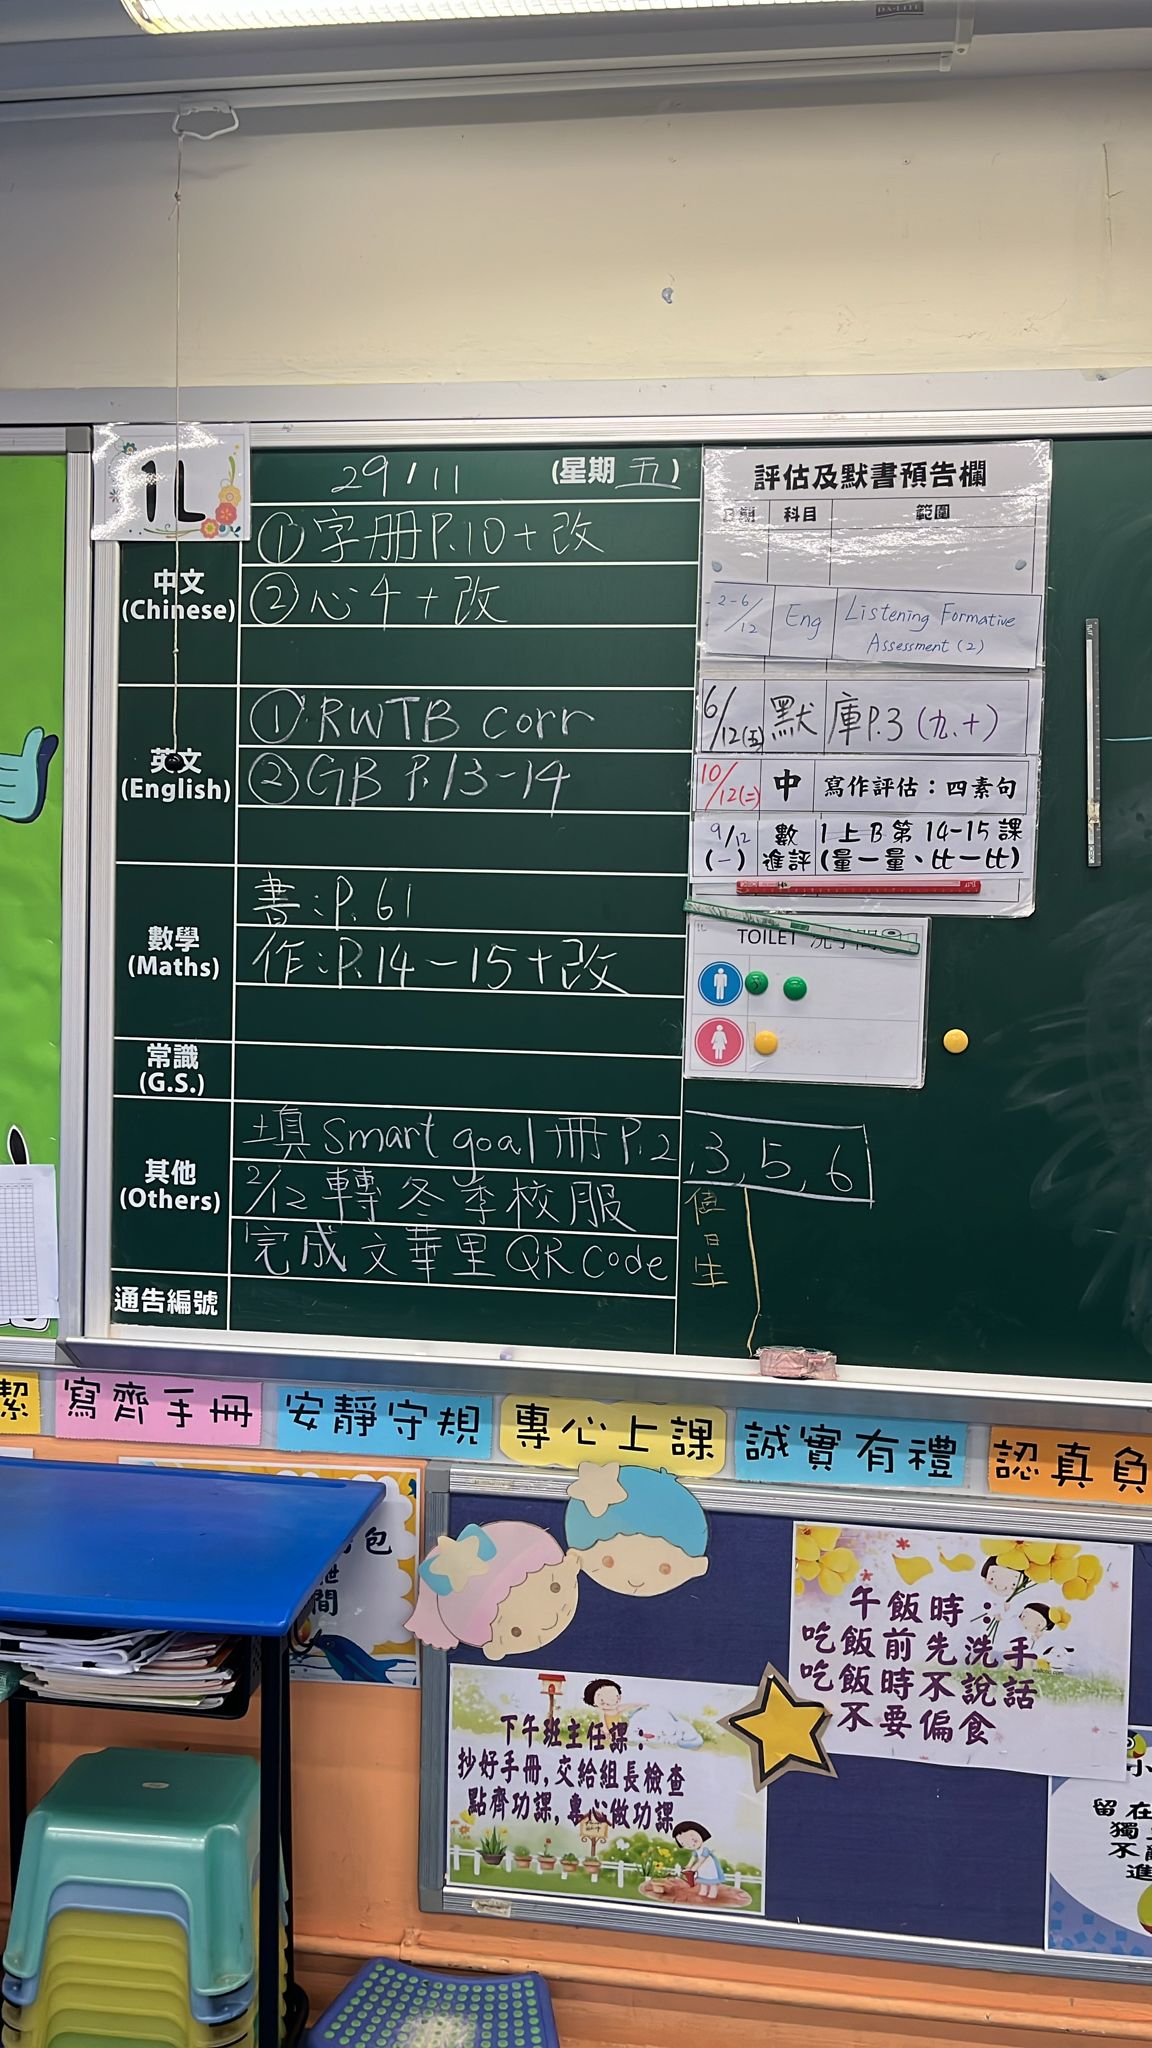 DA-LITE
1L
29/11 (星期五)
中文
(Chinese)
①字册P.10+改
②心4+改
英文
(English)
①RWTB corr
②GB P.13-14
數學
(Maths)
書:P.61
作:P.14-15+改
常識
(G.S.)
其他
(Others)
填Smart goal冊P.2,3,5,6
2/12轉冬季校服
完成文華里QR Code
通告編號
值日生
評估及默書預告欄
日期 科目 範圍
2-6/12 Eng Listening Formative
Assessment (2)
6/12(五) 默 庫P.3(九、十)
10/12(二) 中 寫作評估：四素句
9/12 數 1上B第14-15課
(一) 進評 (量一量、比一比)
TOILET 洗手間
潔
寫齊手冊
安靜守規
專心上課
誠實有禮
認真負
包
間
午飯時：
吃飯前先洗手
吃飯時不說話
不要偏食
下午班主任課：
抄好手冊,交給組長檢查
點齊功課,專心做功課
小
留在
獨
不
進